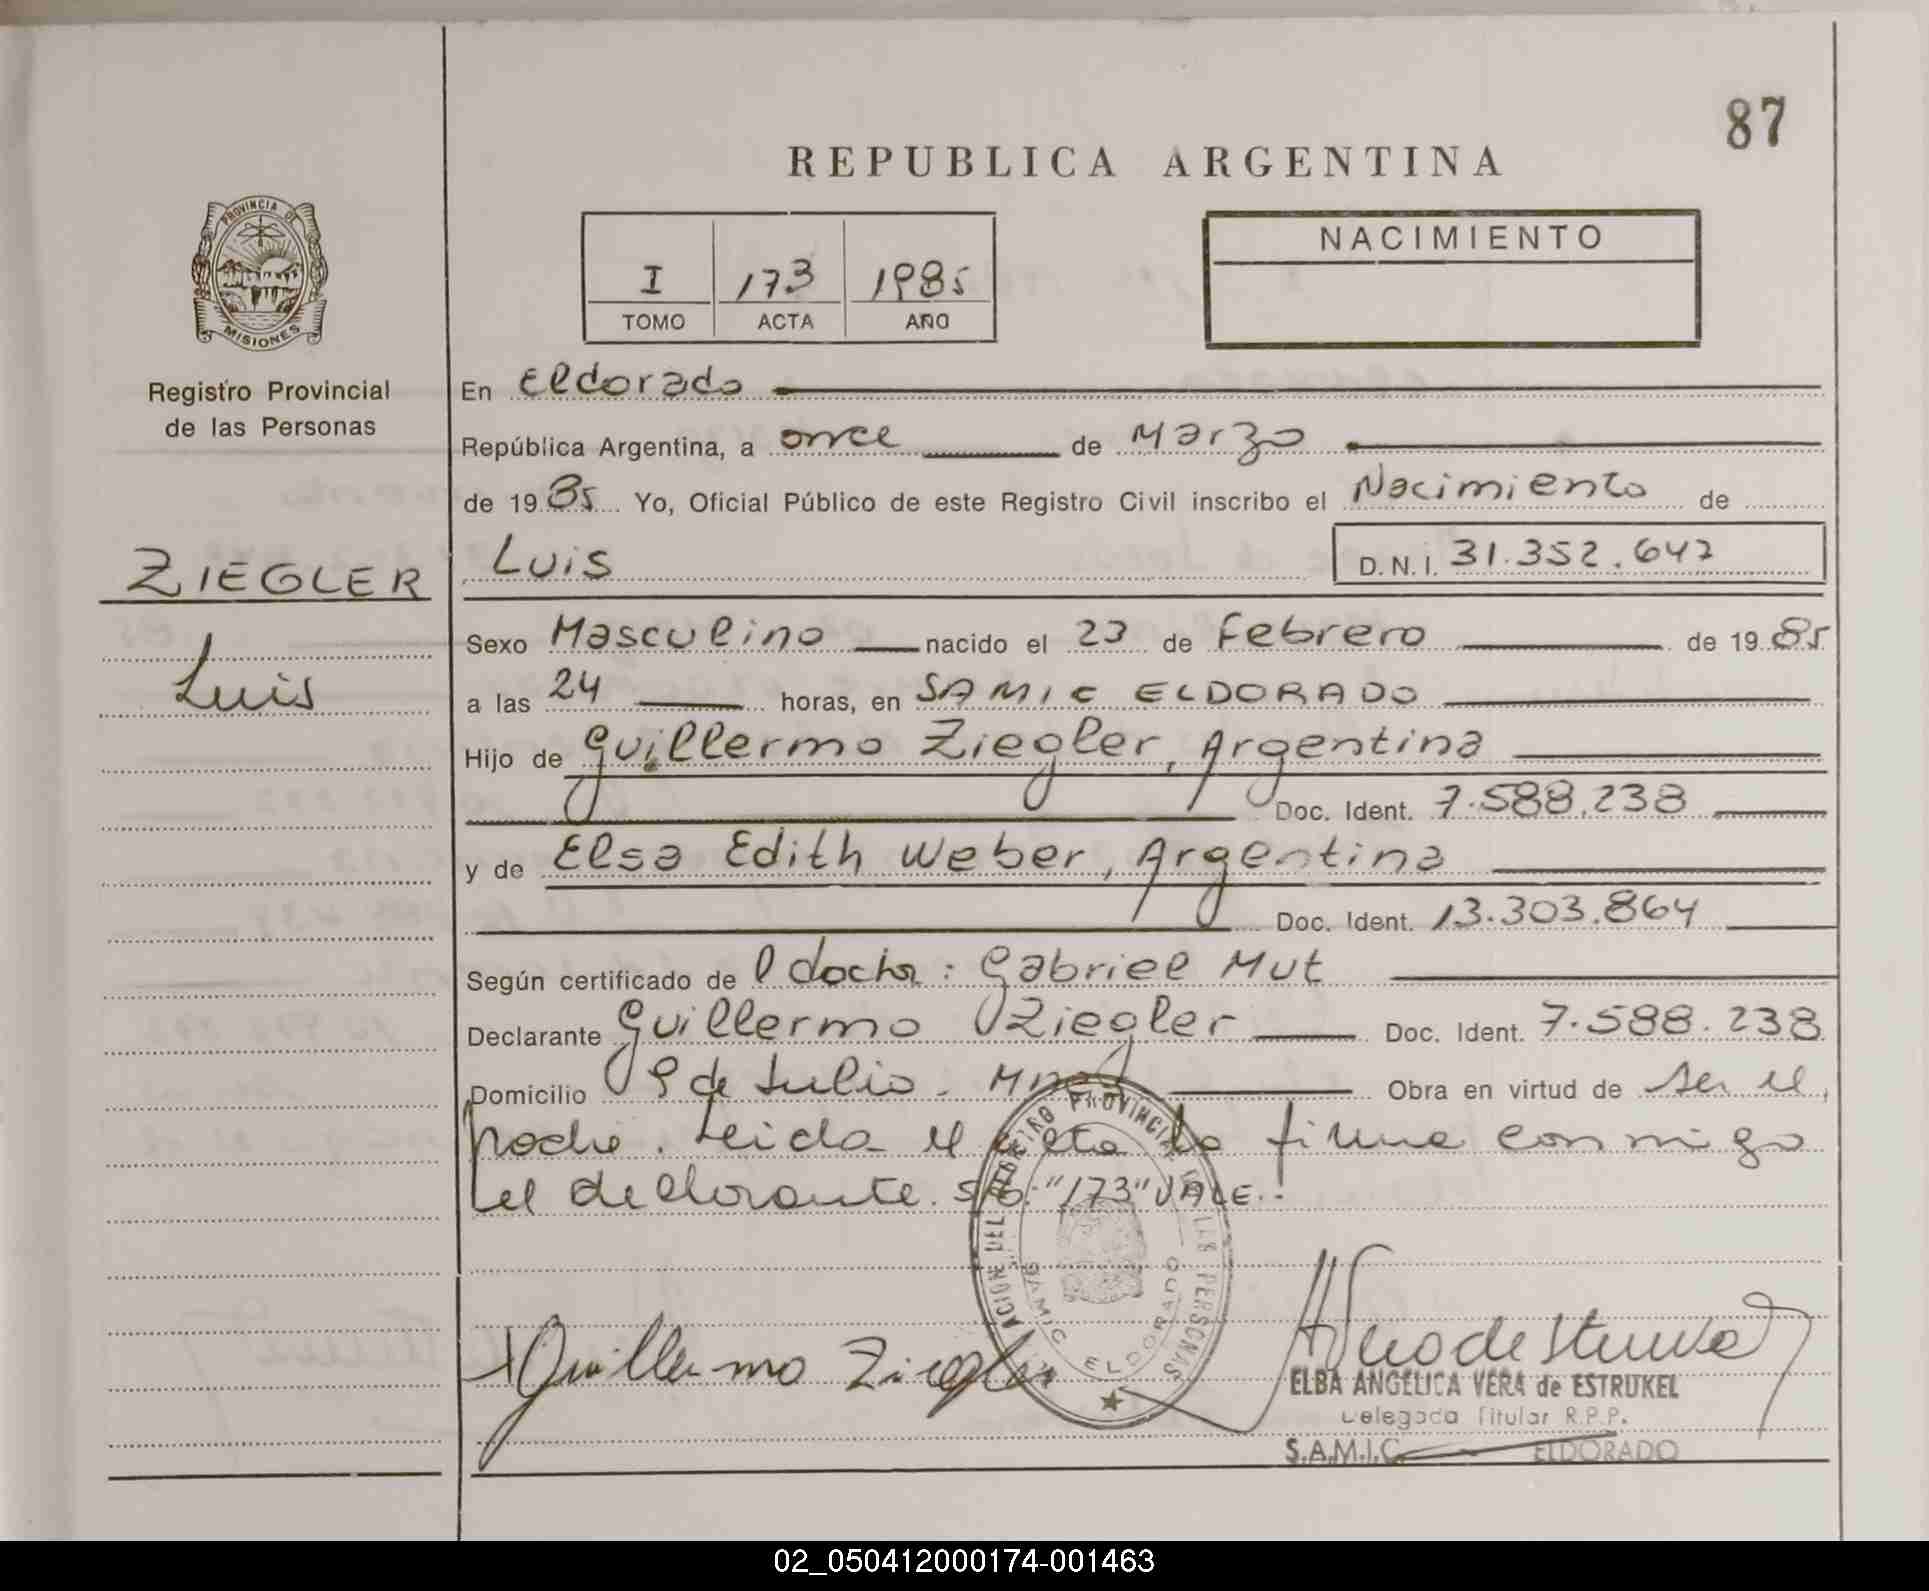 87
REPUBLICA ARGENTINA
PROVINCIA DE
MISIONES
Registro Provincial
de las Personas
I 173 1985
TOMO ACTA AÑO
NACIMIENTO
En Eldorado
República Argentina, a once de Marzo
de 1985 Yo, Oficial Público de este Registro Civil inscribo el Nacimiento de
ZIEGLER
Luis
Luis D.N.I. 31.352.647
Sexo Masculino nacido el 23 de Febrero de 1985
a las 24 horas, en SAMIC ELDORADO
Hijo de Guillermo Ziegler, Argentina
Doc. Ident. 7.588.238
y de Elsa Edith Weber, Argentina
Doc. Ident. 13.303.864
Según certificado de l doctor: Gabriel Mut
Declarante Guillermo Ziegler Doc. Ident. 7.588.238
Domicilio 9 de Julio. Mnes Obra en virtud de ser el
padre. Leida el acta la firma conmigo
el declarante. S/B: "173" VALE.-
REGISTRO PROVINCIAL DE LAS PERSONAS
SAMIC ELDORADO
Guillermo Ziegler
ELBA ANGELICA VERA de ESTRUKEL
Delegada Titular R.P.P.
S.A.M.I.C. ELDORADO
02_050412000174-001463